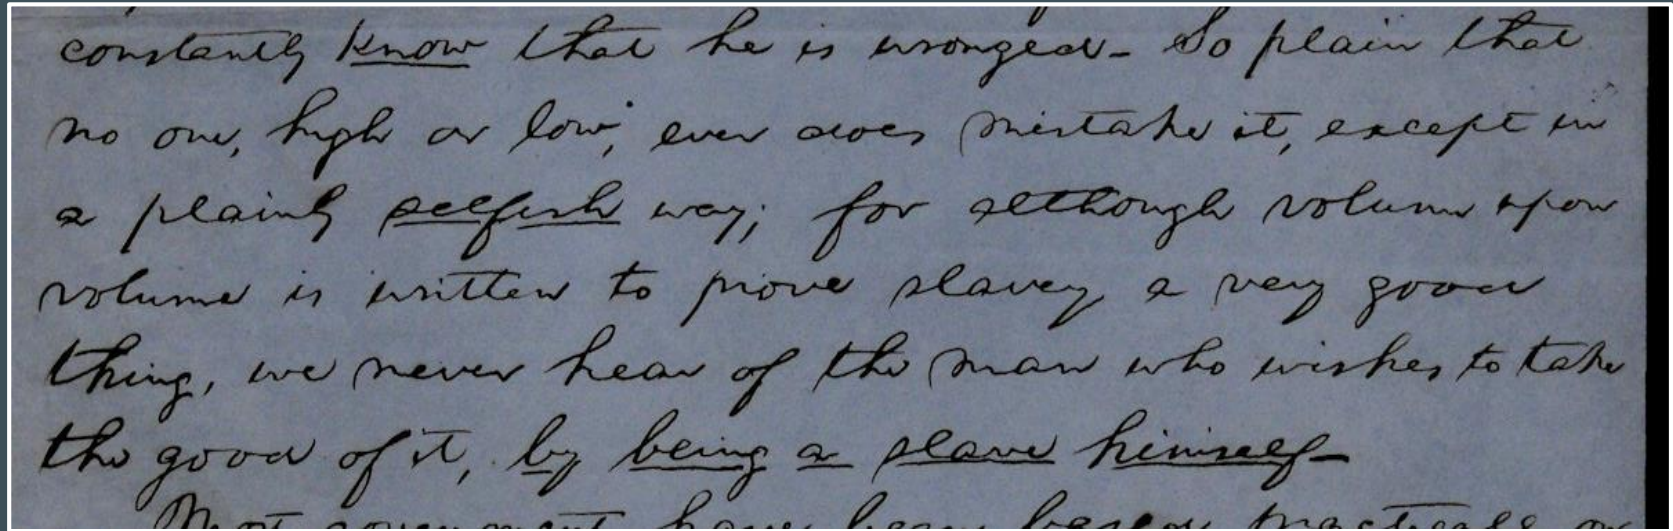 constantly know that he is wronged- So plain that
no one, high or low, ever does mistake it, except in
a plainly selfish way; for although volume upon
volume is written to prove slavery a very good
thing, we never hear of the man who wishes to take
the good of it, by being a slave himself-
Most government have been based, practically, on